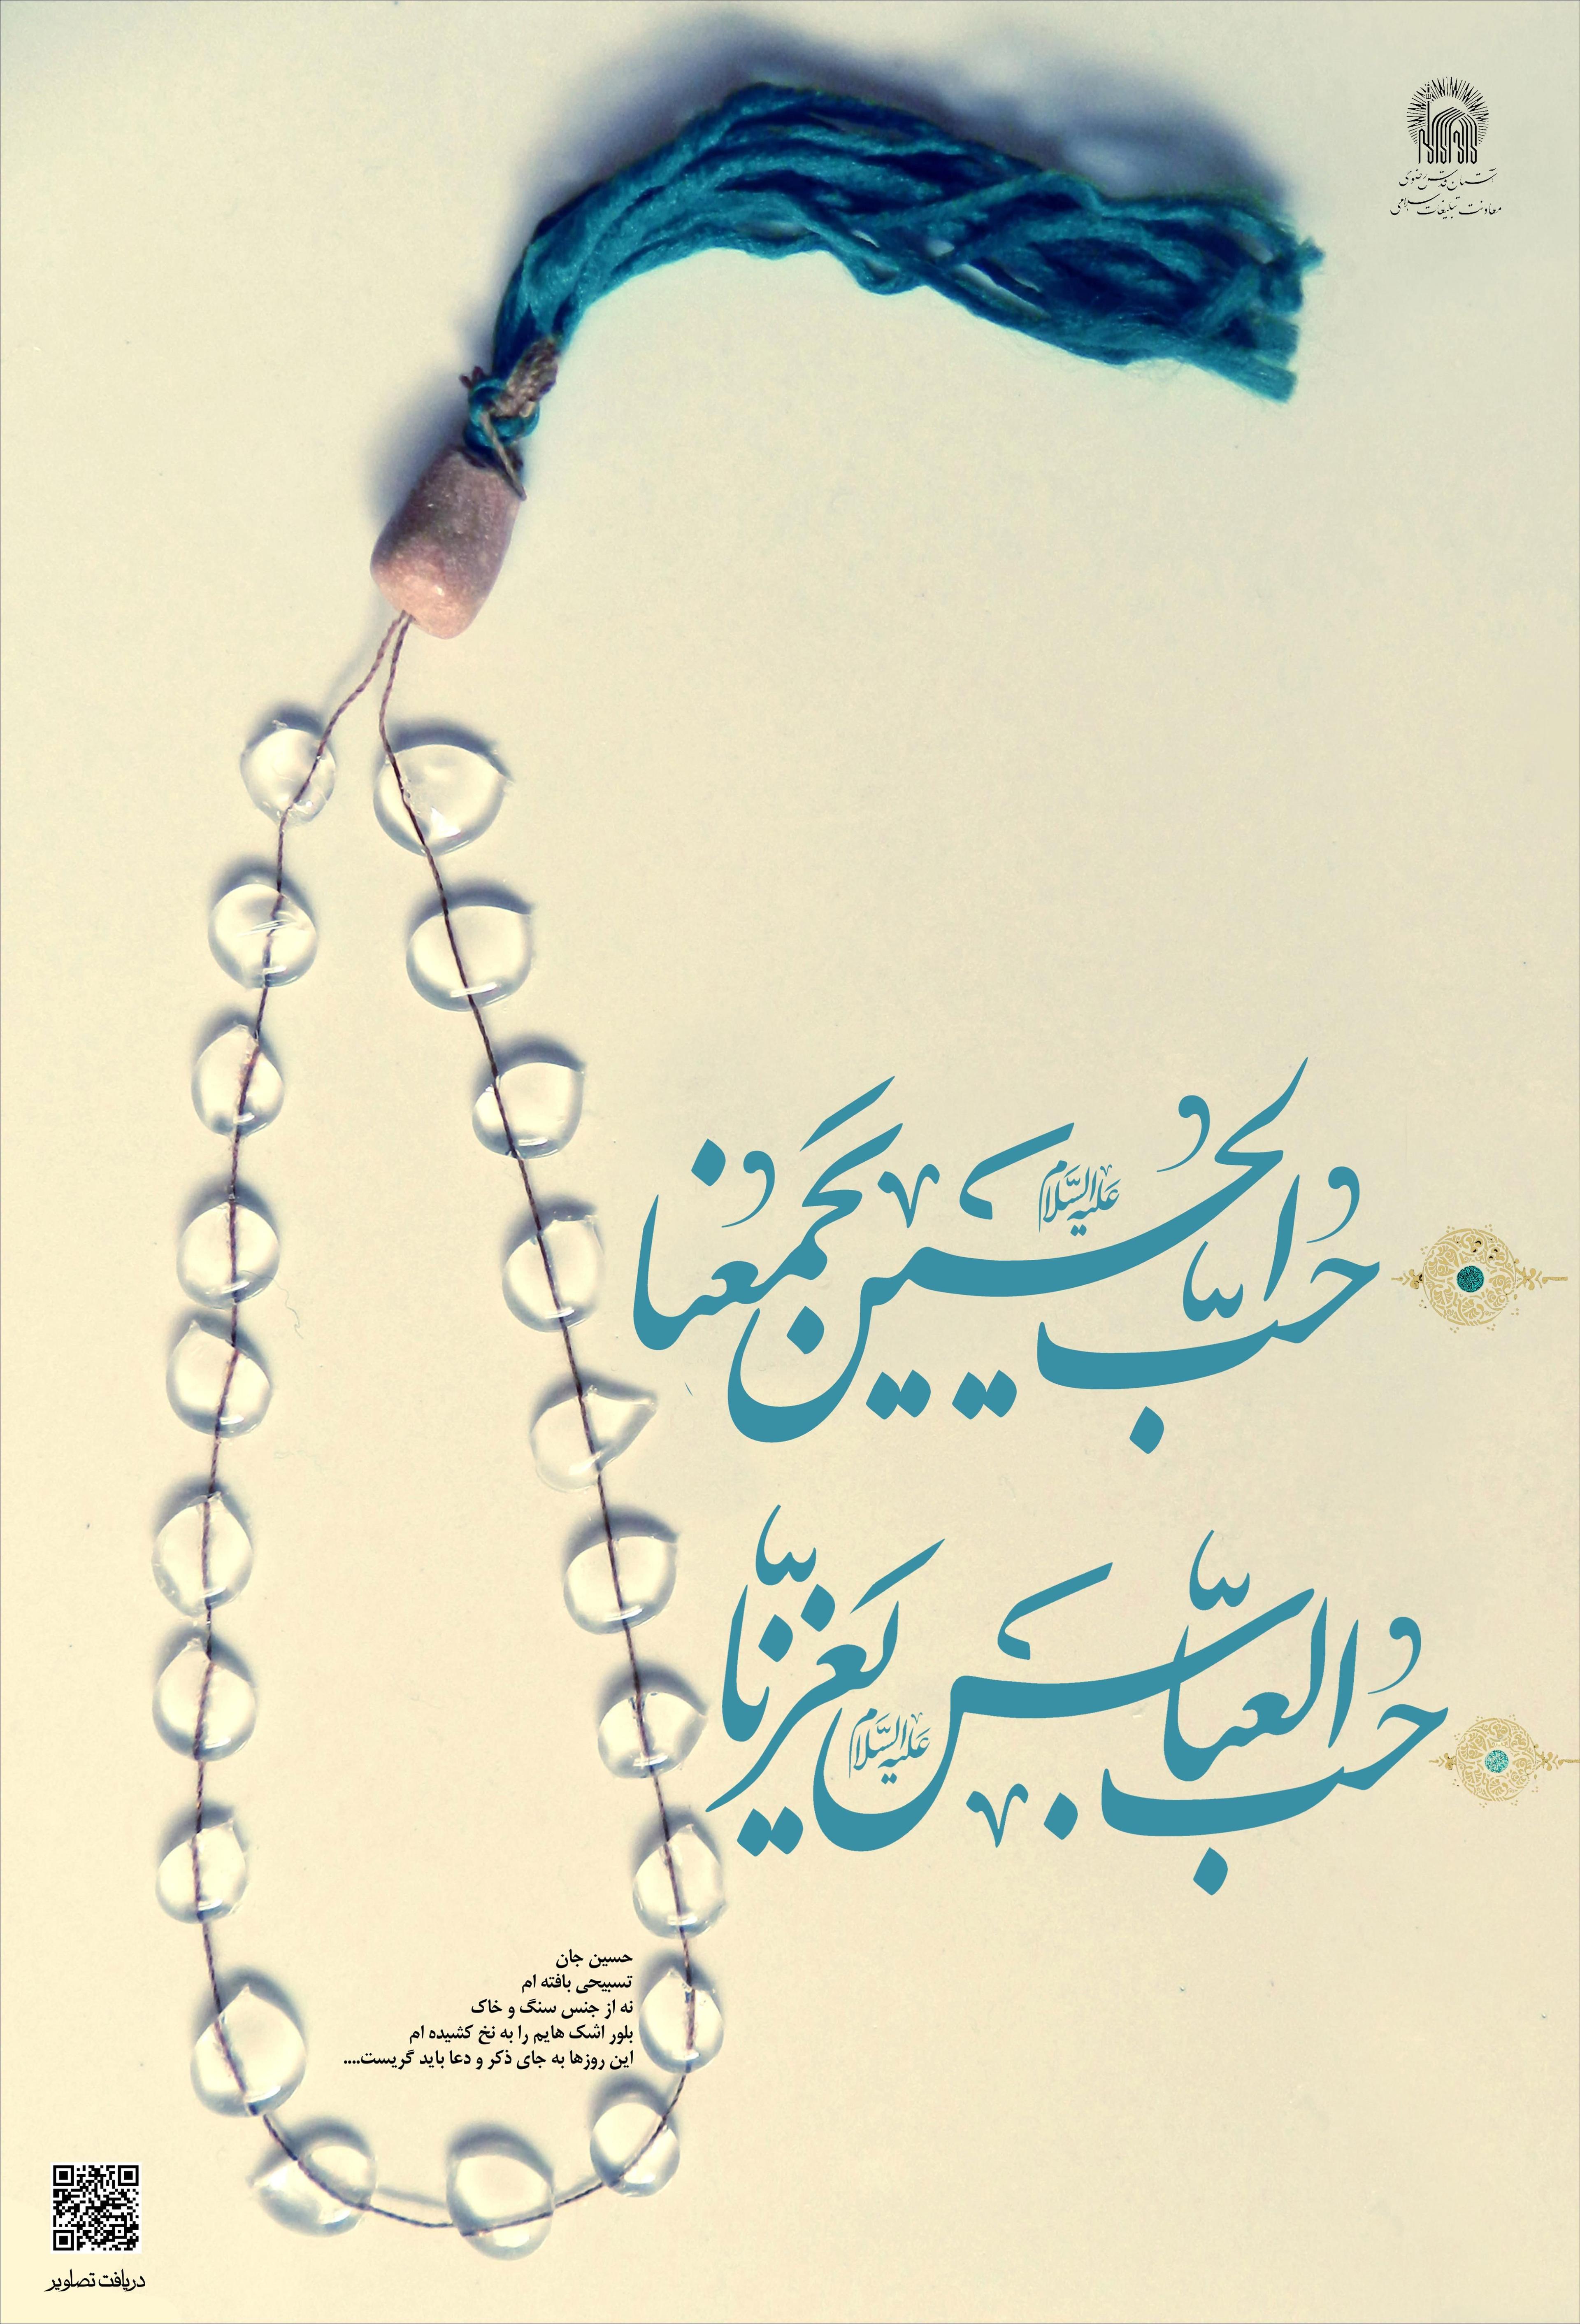 آستان قدس رضوی
معاونت تبلیغات اسلامی
حُبُّ الحُسَین یَجمَعُنا
علیه السّلام
حُبُّ العبّاس یُعَزِّنا
علیه السّلام
حسین جان
تسبیحی بافته ام
نه از جنس سنگ و خاک
بلور اشک هایم را به نخ کشیده ام
این روزها به جای ذکر و دعا باید گریست....
دریافت تصاویر